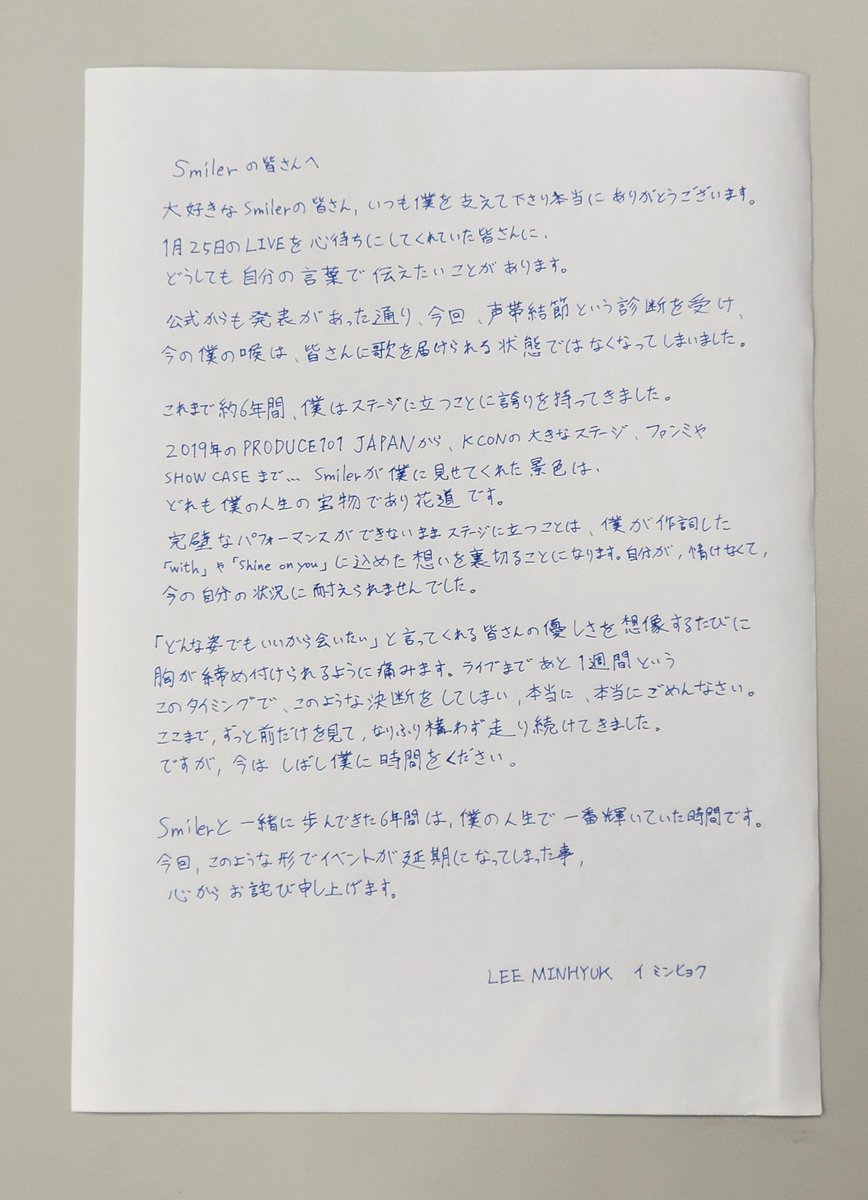 Smilerの皆さんへ
大好きなSmilerの皆さん,いつも僕を支えて下さり本当にありがとうございます。
1月25日のLIVEを心待ちにしてくれていた皆さんに、
どうしても自分の言葉で伝えたいことがあります。
公式からも発表があった通り、今回、声帯結節という診断を受け、
今の僕の喉は、皆さんに歌を届けられる状態ではなくなってしまいました。
これまで約6年間、僕はステージに立つことに誇りを持ってきました。
2019年のPRODUCE101 JAPANから、KCONの大きなステージ、ファンミや
SHOW CASEまで... Smilerが僕に見せてくれた景色は、
どれも僕の人生の宝物であり花道です。
完璧なパフォーマンスができないままステージに立つことは、僕が作詞した
「with」や「Shine on you」に込めた想いを裏切ることになります。自分が,情けなくて,
今の自分の状況に耐えられませんでした。
「どんな姿でもいいから会いたい」と言ってくれる皆さんの優しさを想像するたびに
胸が締め付けられるように痛みます。ライブまであと1週間という
このタイミングで、このような決断をしてしまい,本当に、本当にごめんなさい。
ここまで,ずっと前だけを見て,なりふり構わず走り続けてきました。
ですが,今はしばし僕に時間をください。
Smilerと一緒に歩んできた6年間は,僕の人生で一番輝いていた時間です。
今回,このような形でイベントが延期になってしまった事,
心からお詫び申し上げます。
LEE MINHYUK イ ミンヒョク